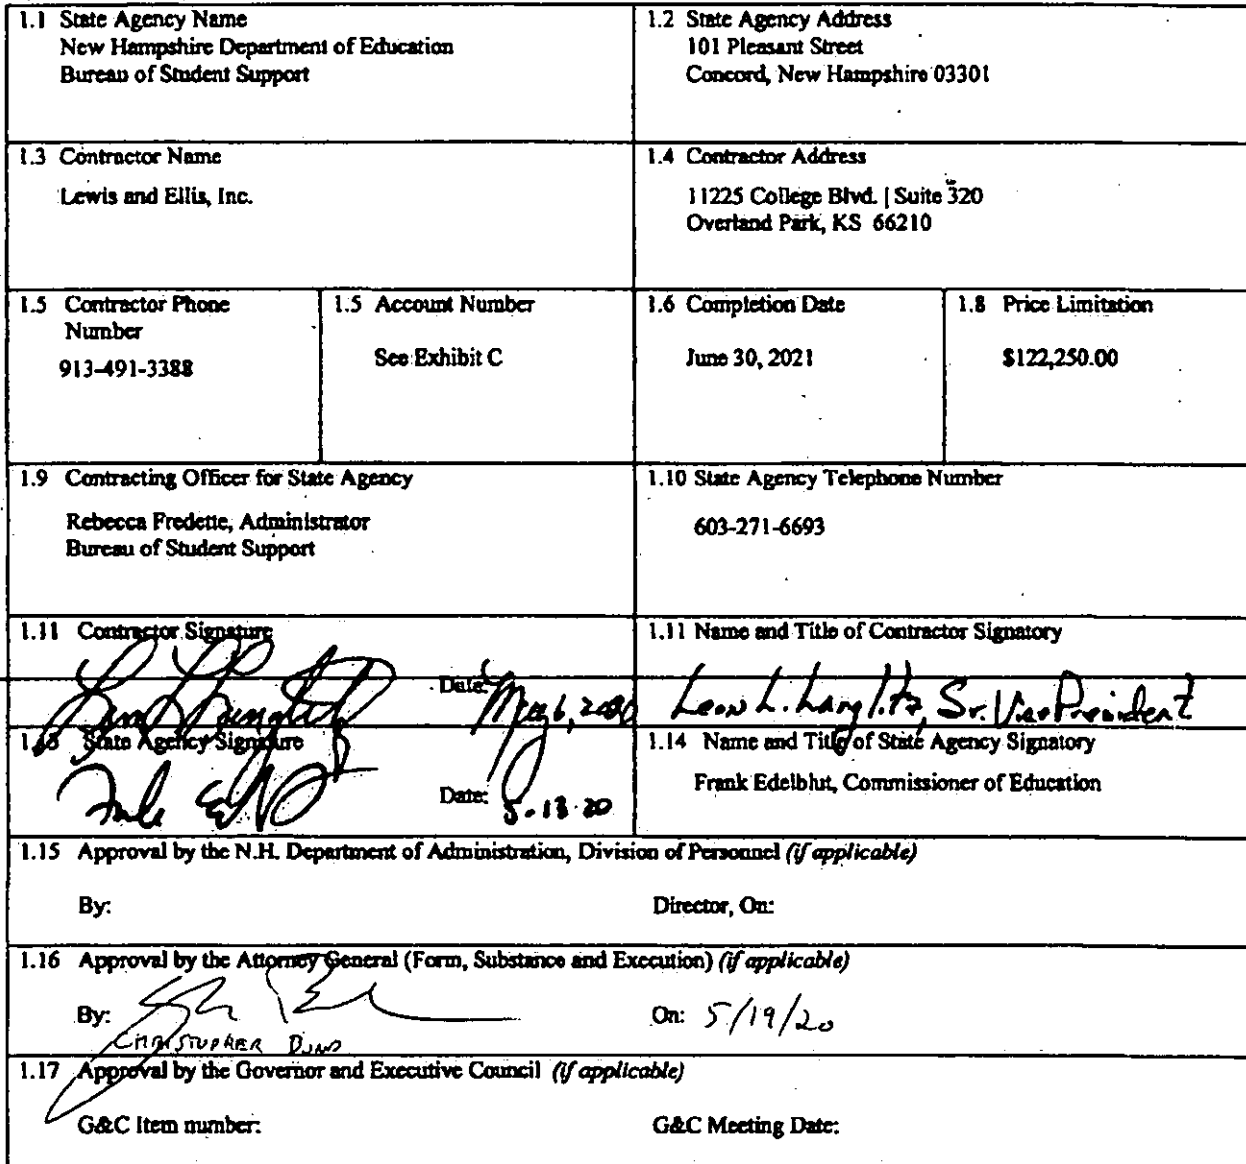 1.1 State Agency Name
New Hampshire Department of Education
Bureau of Student Support
1.2 State Agency Address
101 Pleasant Street
Concord, New Hampshire 03301
1.3 Contractor Name
Lewis and Ellis, Inc.
1.4 Contractor Address
11225 College Blvd. | Suite 320
Overland Park, KS 66210
1.5 Contractor Phone
Number
913-491-3388
1.5 Account Number
See Exhibit C
1.6 Completion Date
June 30, 2021
1.8 Price Limitation
$122,250.00
1.9 Contracting Officer for State Agency
Rebecca Fredette, Administrator
Bureau of Student Support
1.10 State Agency Telephone Number
603-271-6693
1.11 Contractor Signature
Date: May 6, 2020
1.11 Name and Title of Contractor Signatory
Leon L. Langlitz, Sr. Vice President
1.13 State Agency Signature
Date: 5-13-20
1.14 Name and Title of State Agency Signatory
Frank Edelblut, Commissioner of Education
1.15 Approval by the N.H. Department of Administration, Division of Personnel (if applicable)
By:
Director, On:
1.16 Approval by the Attorney General (Form, Substance and Execution) (if applicable)
By:
On: 5/19/20
CHRISTOPHER BOND
1.17 Approval by the Governor and Executive Council (if applicable)
G&C Item number:
G&C Meeting Date: